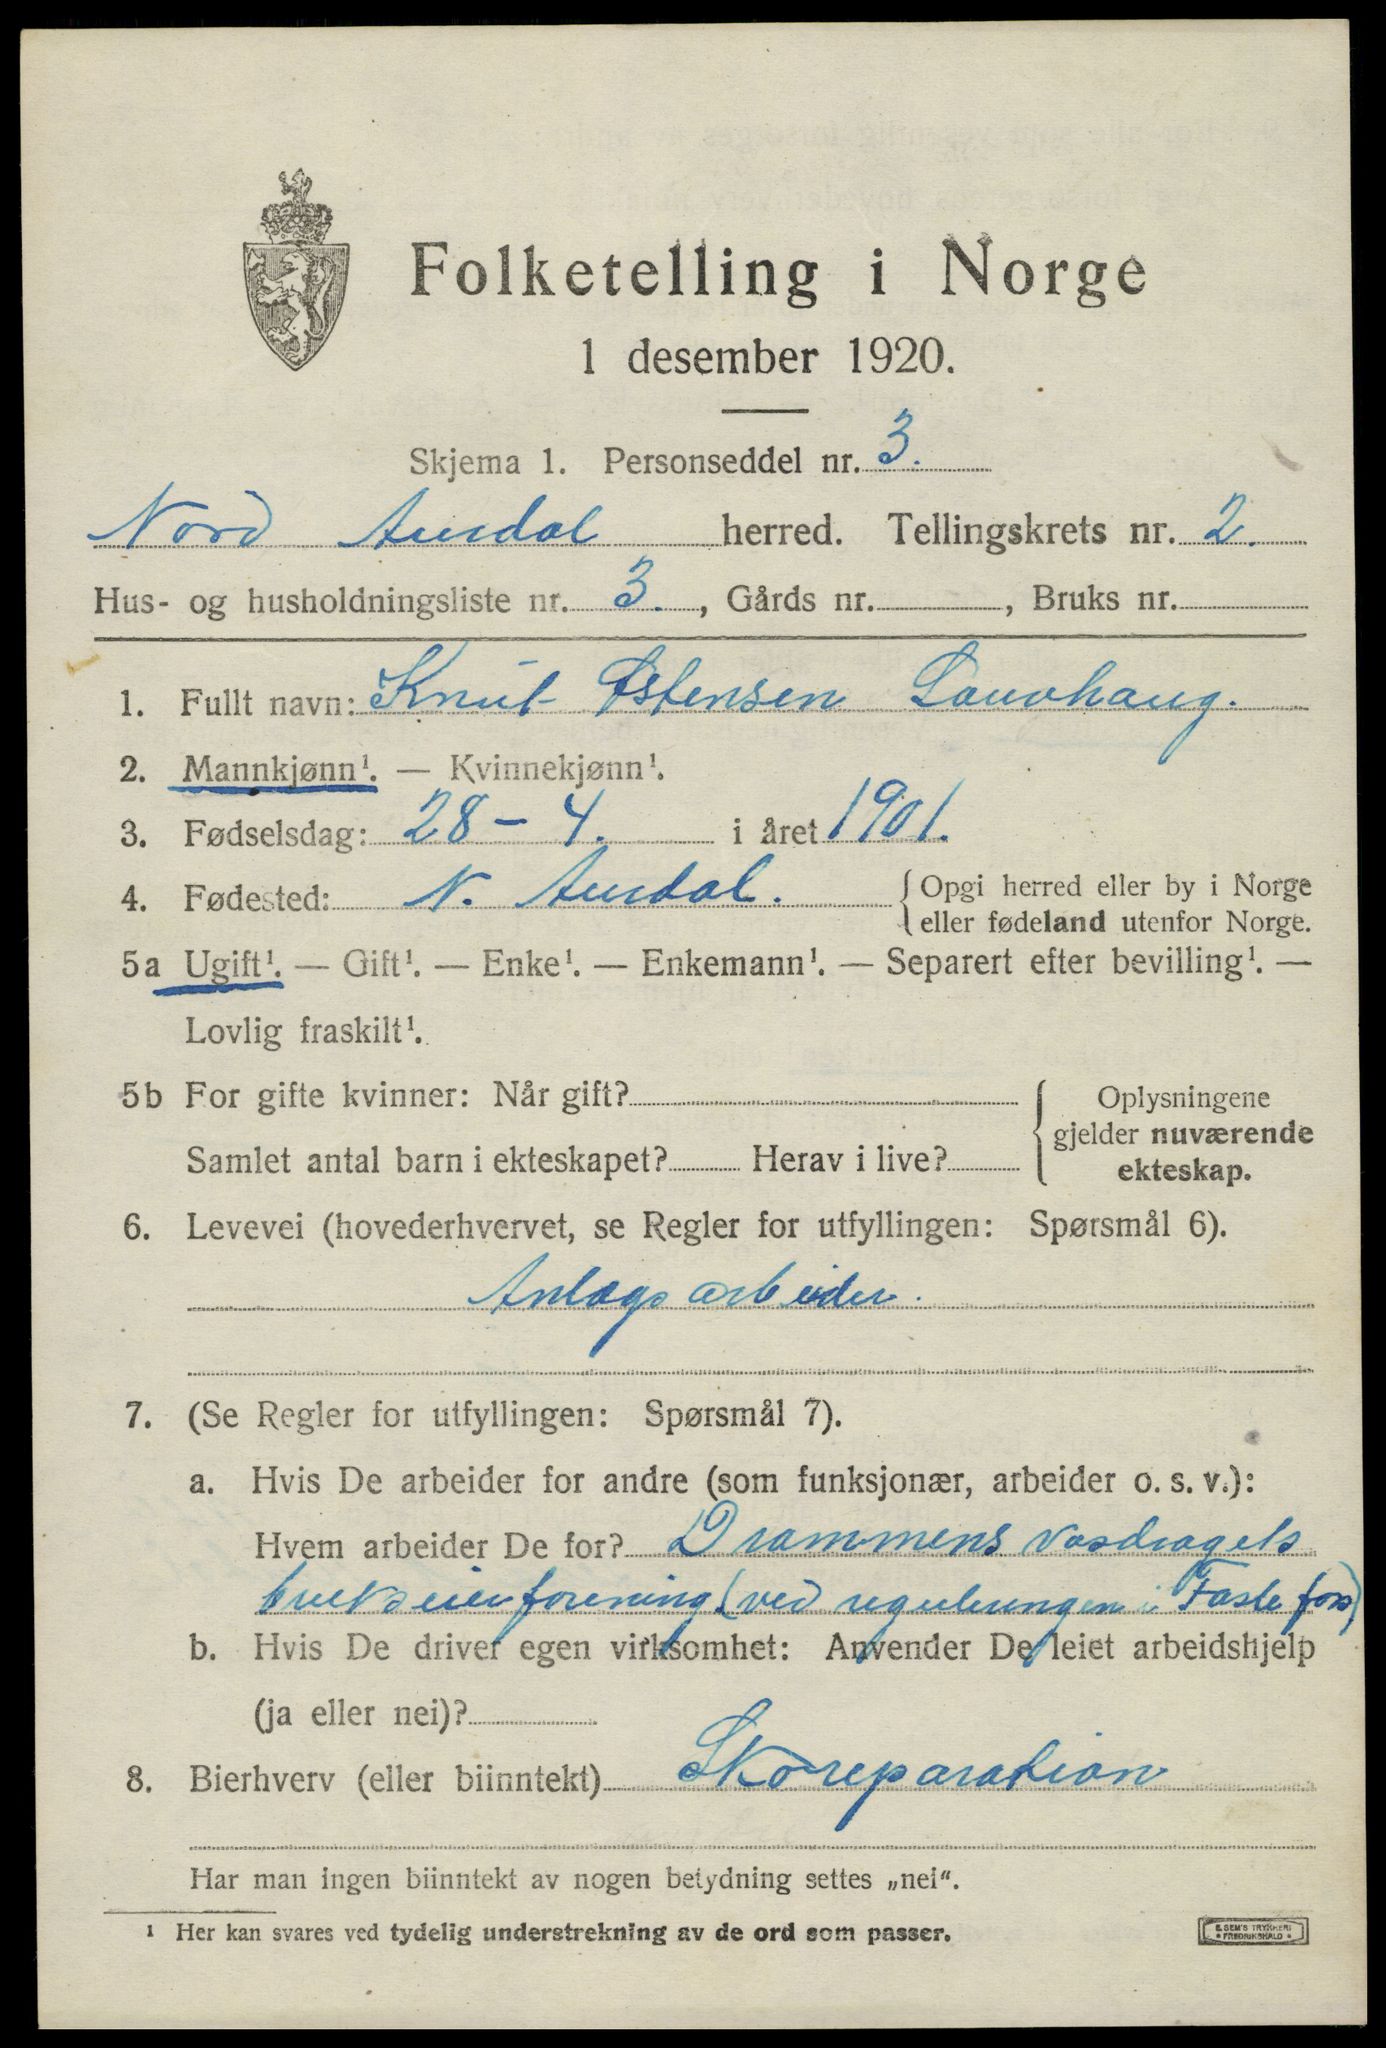 Folketelling i Norge
1 desember 1920.
Skjema 1. Personseddel nr. 3.
Nord Aurdal herred. Tellingskrets nr. 2.
Hus- og husholdningsliste nr. 3., Gårds nr. , Bruks nr.
1. Fullt navn: Knut Østensen Lauvhaug.
2. Mannkjønn¹. — Kvinnekjønn¹.
3. Fødselsdag: 28 – 4. i året 1901.
4. Fødested: N. Aurdal. { Opgi herred eller by i Norge
eller fødeland utenfor Norge.
5a Ugift¹. — Gift¹. — Enke¹. — Enkemann¹. — Separert efter bevilling¹. —
Lovlig fraskilt¹.
5b For gifte kvinner: Når gift? { Oplysningene
gjelder nuværende
Samlet antal barn i ekteskapet? Herav i live?
ekteskap.
6. Levevei (hovederhvervet, se Regler for utfyllingen: Spørsmål 6).
Anlægsarbeider.
7. (Se Regler for utfyllingen: Spørsmål 7).
a. Hvis De arbeider for andre (som funksjonær, arbeider o. s. v.):
Hvem arbeider De for? Drammens vasdragets
brukseierforening (ved reguleringen i Faslefoss)
b. Hvis De driver egen virksomhet: Anvender De leiet arbeidshjelp
(ja eller nei)?
8. Bierhverv (eller biinntekt) Skoreparation
Har man ingen biinntekt av nogen betydning settes „nei“.
¹ Her kan svares ved tydelig understrekning av de ord som passer.
E. SEM'S TRYKKERI
• FREDRIKSHALD •